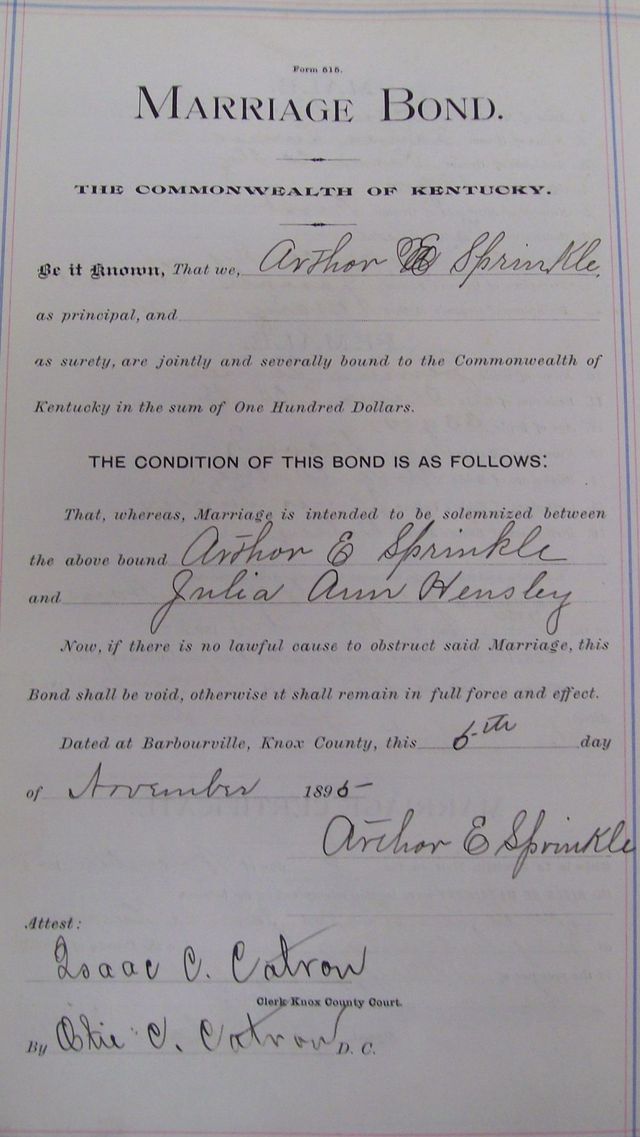 Form 515.
MARRIAGE BOND.
THE COMMONWEALTH OF KENTUCKY.
Be it Known, That we, Arthor E Sprinkle,
as principal, and
as surety, are jointly and severally bound to the Commonwealth of
Kentucky in the sum of One Hundred Dollars.
THE CONDITION OF THIS BOND IS AS FOLLOWS:
That, whereas, Marriage is intended to be solemnized between
the above bound Arthor E Sprinkle
and Julia Ann Hensley
Now, if there is no lawful cause to obstruct said Marriage, this
Bond shall be void, otherwise it shall remain in full force and effect.
Dated at Barbourville, Knox County, this 5th day
of November 1895
Arthor E Sprinkle
Attest:
Isaac C. Catron
Clerk Knox County Court.
By C. Catron D. C.